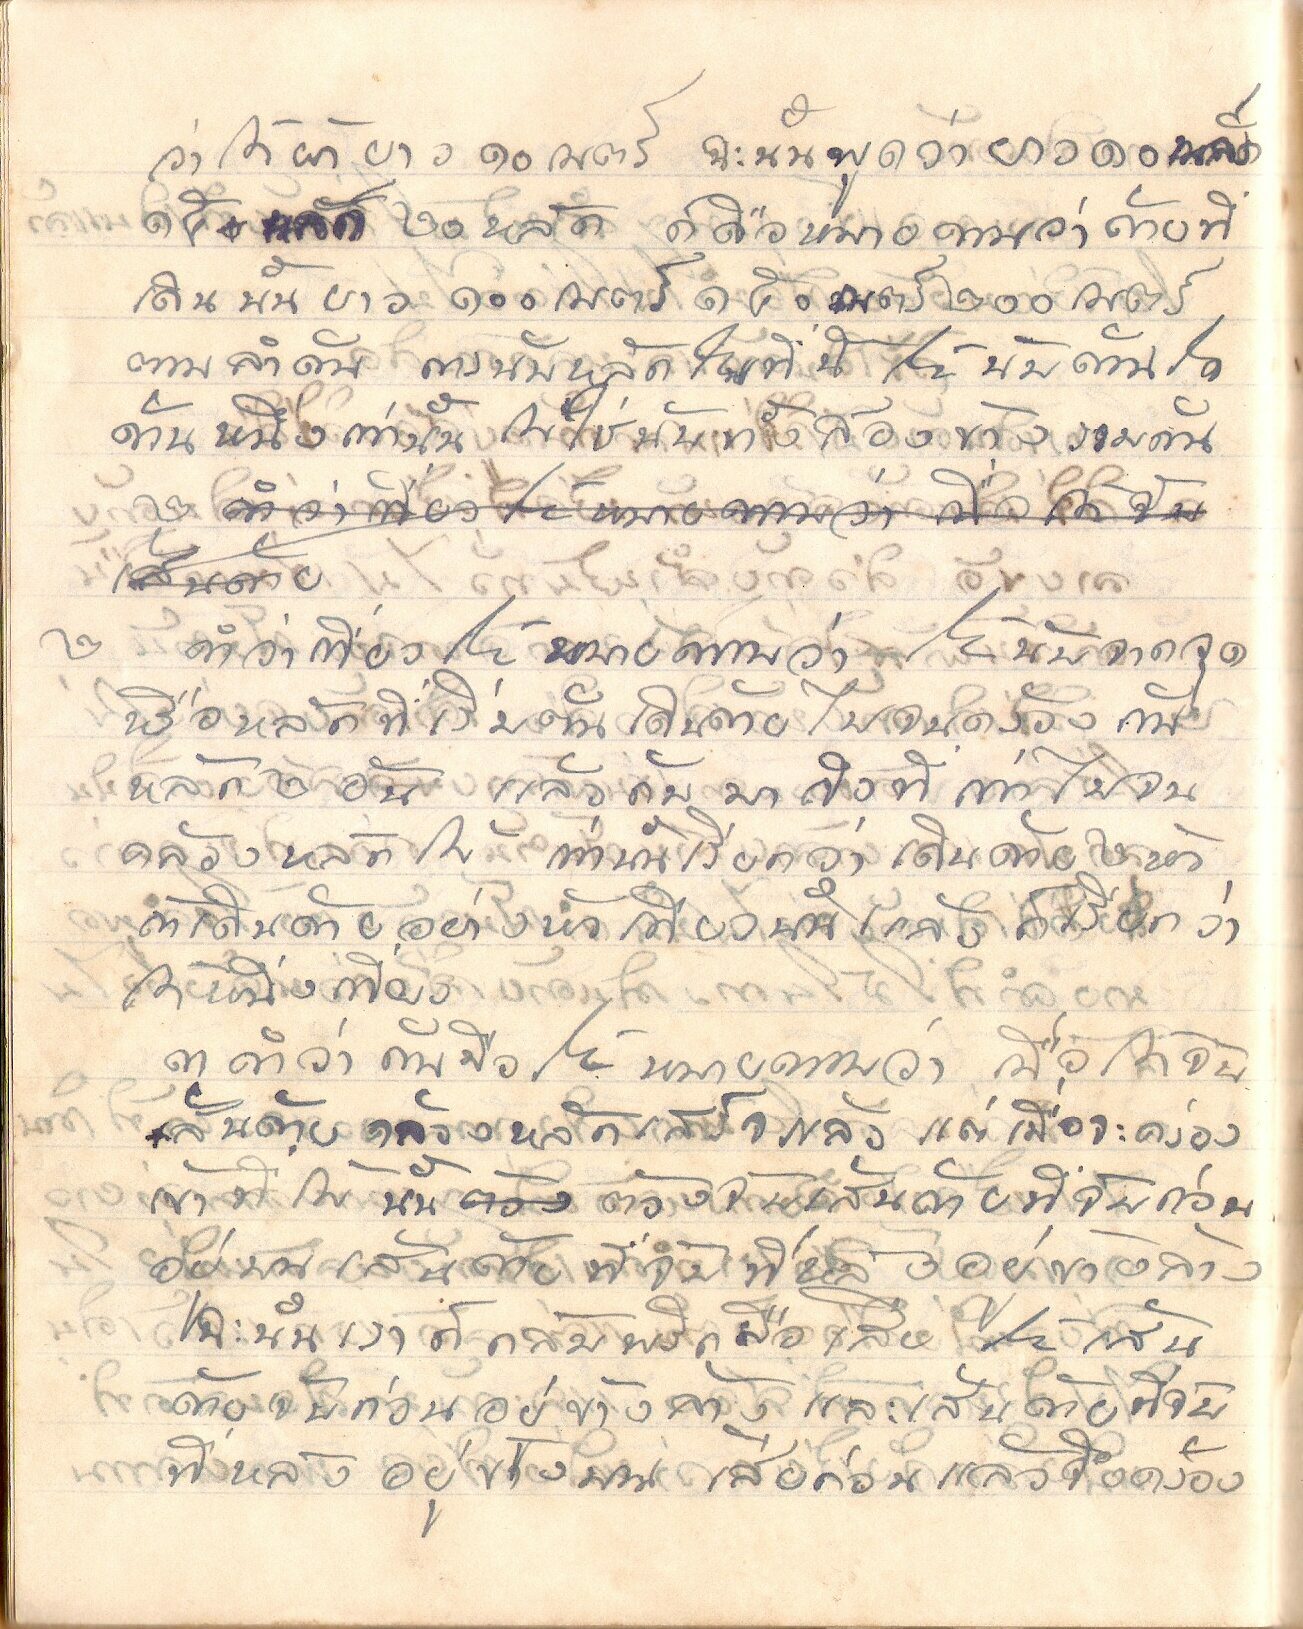 ว่าได้ผ้ายาว ๑๐ เมตร์ ฉะนั้นพูดว่ายาว ๑๐ หลัก
๑๕ หลัก ๒๐ หลัก ก็คือหมายความว่าด้ายที่
เดินนั้นยาว ๑๐๐ เมตร์ ๑๕๐ เมตร์ ๒๐๐ เมตร์
ตามลำดับ การนับหลักในที่นี้ให้นับด้านใด
ด้านหนึ่งเท่านั้น ไม่ใช่นับทั้งสองข้างรวมกัน
๒ คำว่าเที่ยวให้หมายความว่า เมื่อได้จับ
เส้นด้าย
๒ คำว่าเที่ยวให้หมายความว่า ให้นับจากจุด
หรือหลักที่เริ่มต้นเดินด้ายไปจนคร้อง กับ
หลัก ๒ อัน แล้วกลับมาถึงที่เก่าไปจน
คล้องหลักไม้ เท่านั้นเรียกว่าเดินด้าย ๒ หัว
ถ้าเดินด้ายอย่างหัวเดียวนั้นแล้ว ก็เรียกว่า
ได้หนึ่งเที่ยว
๓ คำว่า กลับมือให้หมายความว่า เมื่อได้จับ
เส้นด้ายคล้องหลักเสร็จแล้ว แต่เมื่อจะคร้อง
เข้าที่ไม้นั้น ตรง ตรงจับเส้นด้ายที่จับก่อน
อยู่บนเส้นด้ายที่จับทีหลังอยู่ข้างล่าง
ฉะนั้นเราก็กลับพลิกมือเสีย ให้เส้น
ด้ายจับก่อนอยู่ข้างล่าง และเส้นด้ายที่จับ
ทีหลังอยู่ข้างบนเสียก่อนแล้วจึงคร้อง